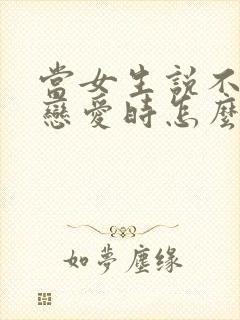 當女生説不
戀愛時怎麼
如夢塵缘